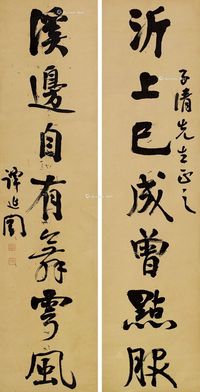 沂上已成曾點服
子清先生正之
溪邊自有舞雩風
譚延闓